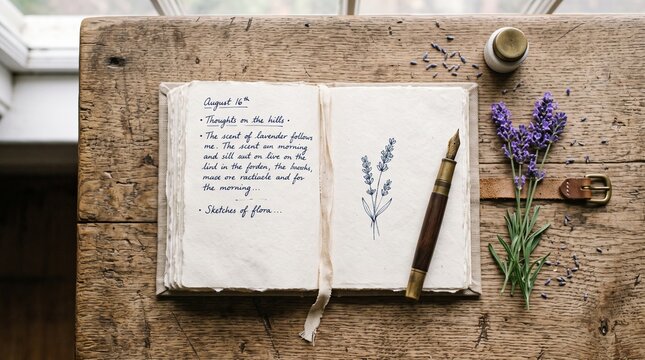 August 16th
• Thoughts on the hills •
• The scent of lavender follows
me. The scent un morning
and sill out on live on the
lind in the forden, the
muse ore ractiaele and for
the morning...
• Sketches of flora...